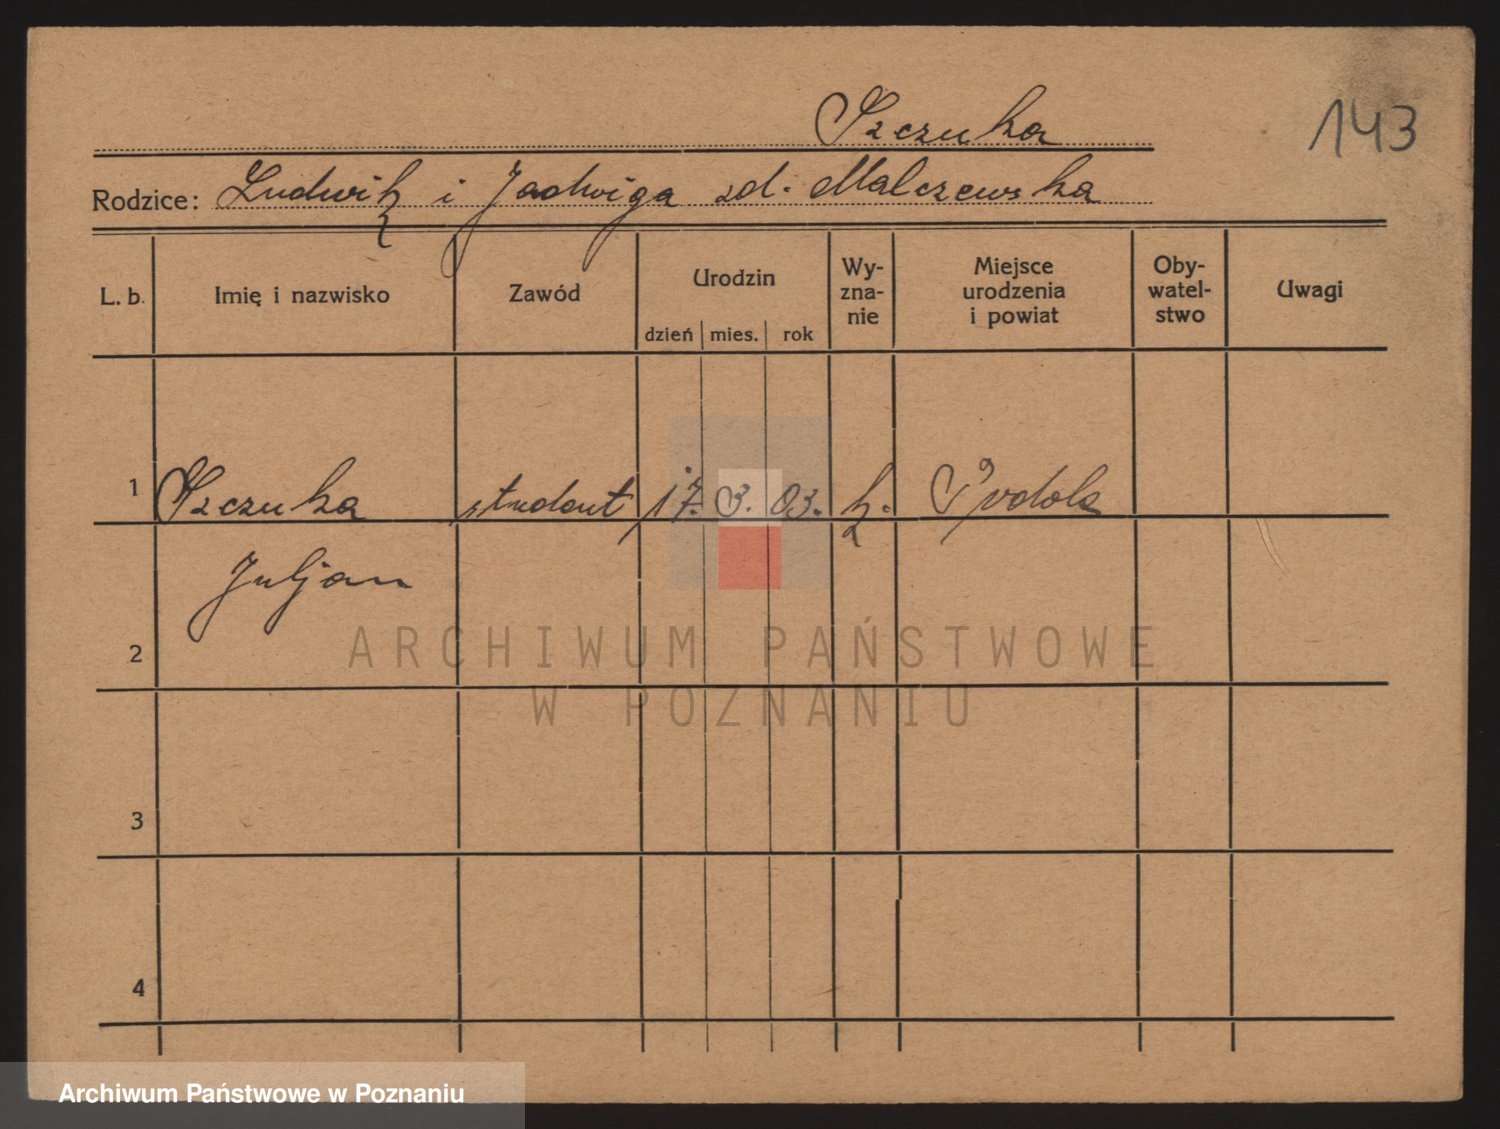 Szczuka
143
Rodzice: Ludwik i Jadwiga zd. Malczewska
L. b. Imię i nazwisko Zawód Urodzin dzień mies. rok Wyznanie Miejsce urodzenia i powiat Obywatelstwo Uwagi
1 Szczuka student 17. 3. 03. k.
Juljan
2
3
4
ARCHIWUM PAŃSTWOWE
W POZNANIU
Archiwum Państwowe w Poznaniu